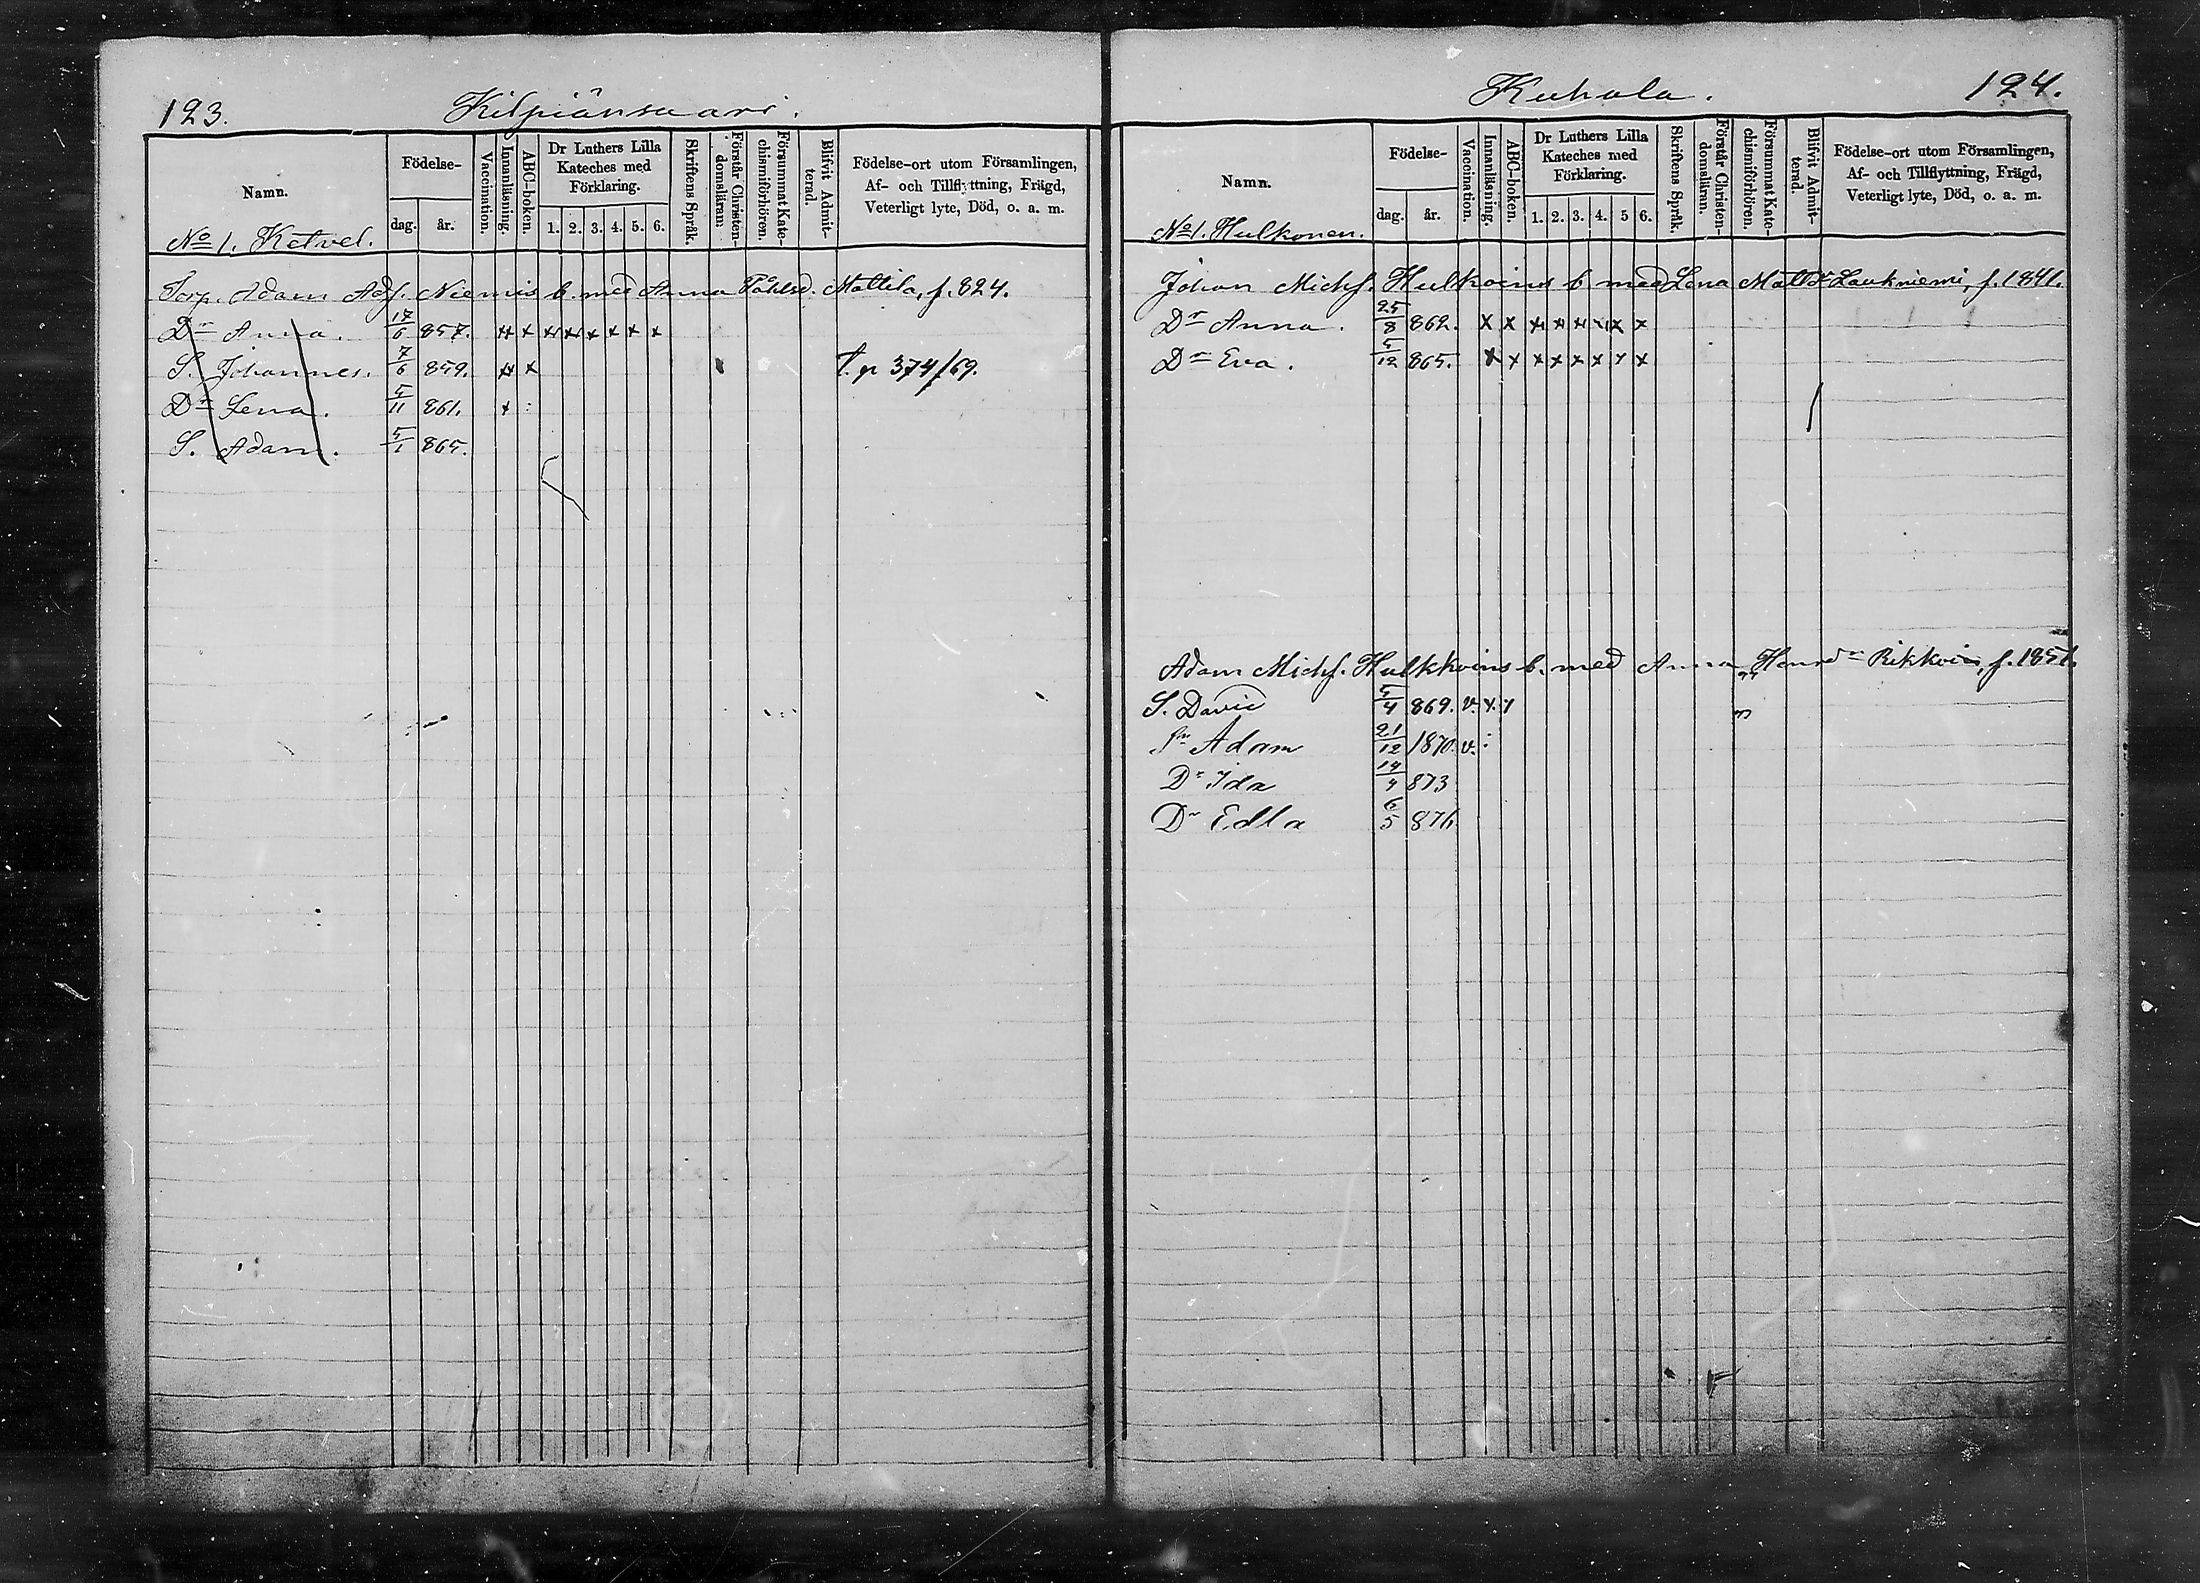 123.
Kilpiänsaari.
Namn.
Födelse-
dag.
år.
Vaccination.
Innanläsning.
ABC-boken.
Dr Luthers Lilla
Kateches med
Förklaring.
1. 2. 3. 4. 5. 6.
Skriftens Språk.
Förstår Christen-
domsläran.
Försummat Kate-
chismiförhören.
Blifvit Admit-
terad.
Födelse-ort utom Församlingen,
Af- och Tillflyttning, Frägd,
Veterligt lyte, Död, o. a. m.
No 1. Ketvel.
Torp. Adam Adf. Niemis b. med Anna Påhlsd. Mattila, f. 824.
Dr Anna. 17/6 857. x x x x x x x x
S. Johannes. 7/6 859. x x t. p 374/69.
Dr Lena. 5/11 861. x :
S. Adam. 5/1 865.
124.
Kuhala.
Namn.
Födelse-
dag.
år.
Vaccination.
Innanläsning.
ABC-boken.
Dr Luthers Lilla
Kateches med
Förklaring.
1. 2. 3. 4. 5 6.
Skriftens Språk.
Förstår Christen-
domslärnn.
Försummat Kate-
chismiförhören.
Blifvit Admit-
terad.
Födelse-ort utom Församlingen,
Af- och Tillflyttning, Frägd,
Veterligt lyte, Död, o. a. m.
No 1. Hulkonen.
Johan Michf. Hulkoins b med Lena Mattsdr Laukniemi, f. 1841.
Dr Anna. 25/8 862. x x x x x x x x
Dr Eva. 5/12 865. x x x x x x x x
Adam Michf. Hulkkoins b. med Anna Henrdr Rikkoin, f. 1851.
S. David 5/4 869. v. x. x
Sn Adam 21/12 1870. v. :
Dr Ida 14/4 873
Dr Edla 6/5 876